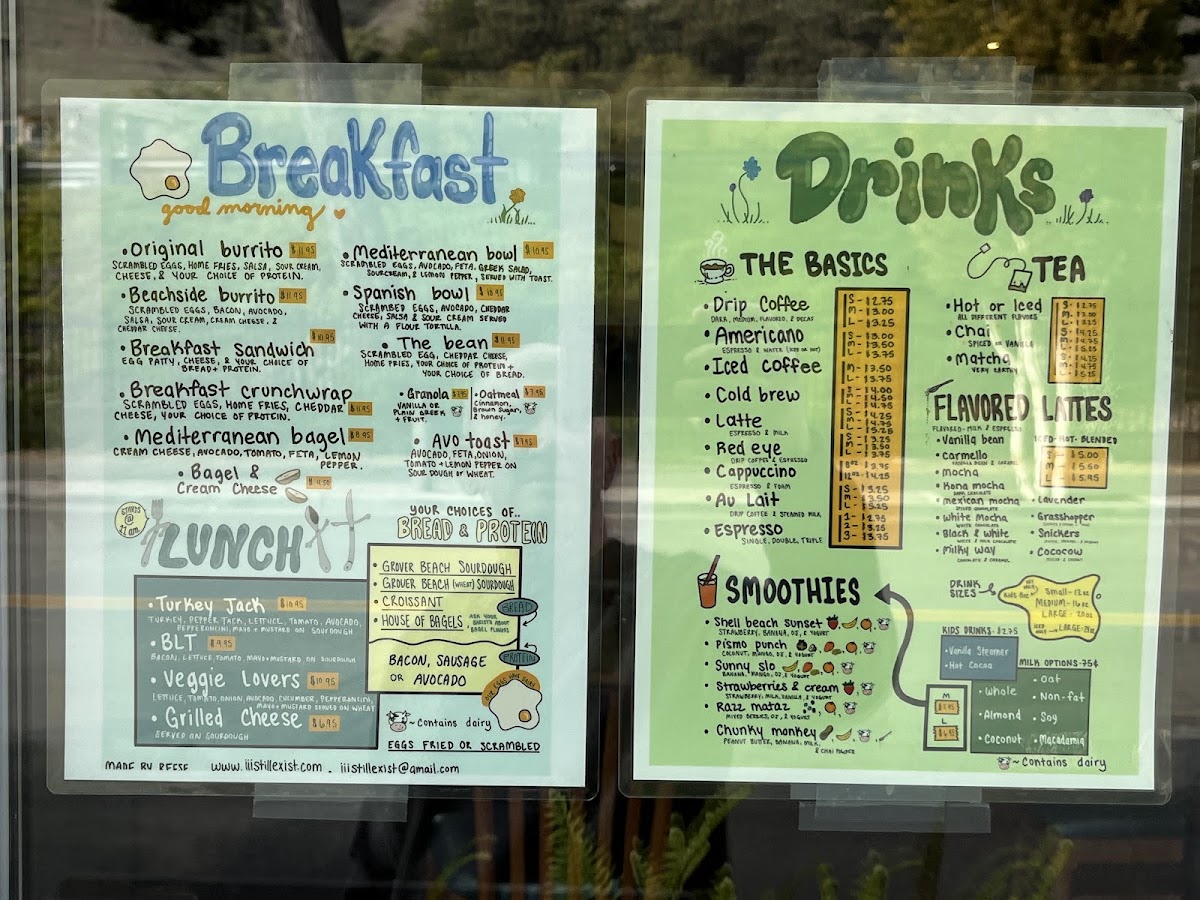 Breakfast
good morning
• Original burrito $11.95
SCRAMBLED EGGS, HOME FRIES, SALSA, SOUR CREAM,
CHEESE, & YOUR CHOICE OF PROTEIN.
• Beachside burrito $11.95
SCRAMBLED EGGS, BACON, AVOCADO,
SALSA, SOUR CREAM, CREAM CHEESE, &
CHEDDAR CHEESE.
• Breakfast sandwich $10.95
EGG PATTY, CHEESE, & YOUR CHOICE OF
BREAD + PROTEIN.
• Breakfast crunchwrap
SCRAMBLED EGGS, HOME FRIES, CHEDDAR
CHEESE, YOUR CHOICE OF PROTEIN.
• Mediterranean bagel $8.95
CREAM CHEESE, AVOCADO, TOMATO, FETA, LEMON
PEPPER.
• Bagel &
Cream Cheese $4.50
• Mediterranean bowl $10.95
SCRAMBLED EGGS, AVOCADO, FETA, GREEK SALAD,
SOURCREAM, & LEMON PEPPER, SERVED WITH TOAST.
• Spanish bowl $10.95
SCRAMBED EGGS, AVOCADO, CHEDDAR
CHEESE, SALSA & SOUR CREAM SERVED
WITH A FLOUR TORTILLA.
• The bean $11.95
SCRAMBLED EGG, CHEDDAR CHEESE,
HOME FRIES, YOUR CHOICE OF PROTEIN +
YOUR CHOICE OF BREAD.
• Granola
VANILLA OR
PLAIN GREEK
+ FRUIT.
• Oatmeal
Cinnamon,
Brown Sugar,
& honey.
• Avo toast $7.95
AVOCADO, FETA, ONION,
TOMATO + LEMON PEPPER ON
SOUR DOUGH OR WHEAT.
STARTS @ 11 am
LUNCH
• Turkey Jack $10.95
TURKEY, PEPPER JACK, LETTUCE, TOMATO, AVOCADO,
PEPPERONCINI, MAYO + MUSTARD ON SOURDOUGH
• BLT $9.95
BACON, LETTUCE, TOMATO, MAYO + MUSTARD ON SOURDOUGH
• Veggie Lovers $10.95
LETTUCE, TOMATO, ONION, AVOCADO, CUCUMBER, PEPPERANCINI,
MAYO + MUSTARD SERVED ON WHEAT
• Grilled Cheese $6.95
SERVED ON SOURDOUGH
YOUR CHOICES OF..
BREAD & PROTEIN
• GROVER BEACH SOURDOUGH
• GROVER BEACH (WHEAT) SOURDOUGH
• CROISSANT
• HOUSE OF BAGELS
ASK YOUR
BARISTA ABOUT
BAGEL FLAVORS
BREAD
BACON, SAUSAGE
OR AVOCADO
PROTEIN
~ Contains dairy
EGGS FRIED OR SCRAMBLED
MADE BY REESE www.iiistillexist.com . iiistillexist@gmail.com
Drinks
THE BASICS
• Drip Coffee
DARK, MEDIUM, FLAVORED, & DECAF
• Americano
ESPRESSO & WATER (ICED OR HOT)
• Iced coffee
• Cold brew
• Latte
ESPRESSO & MILK
• Red eye
DRIP COFFEE & ESPRESSO
• Cappuccino
ESPRESSO & FOAM
• Au Lait
DRIP COFFEE & STEAMED MILK
• Espresso
SINGLE, DOUBLE, TRIPLE
S - $2.75
M - $3.00
L - $3.25
S - $3.00
M - $3.50
L - $3.75
TEA
• Hot or Iced
ALL DIFFERENT FLAVORS
• Chai
SPICED OR VANILLA
• Matcha
VERY EARTHY
FLAVORED LATTES
FLAVORED - MILK & ESPRESSO
ICED - HOT - BLENDED
S - $5.00
M - $5.50
L - $6.00
• Vanilla bean
• carmello
VANILLA BEAN & CARAMEL
• mocha
• Kona mocha
DARK CHOCOLATE
• mexican mocha
SPICED CHOCOLATE
• White mocha
WHITE CHOCOLATE
• Black & white
WHITE & MILK CHOCOLATE
• Milky way
CHOCOLATE & CARAMEL
• Lavender
• Grasshopper
• Snickers
• Cococow
SMOOTHIES
• Shell beach sunset
STRAWBERRY, BANANA, OJ, & YOGURT
• Pismo punch
COCONUT, MANGO, OJ, & YOGURT
• Sunny slo
BANANA, MANGO, OJ, & YOGURT
• Strawberries & cream
STRAWBERRY, MILK, VANILLA, & YOGURT
• Razz mataz
MIXED BERRIES, OJ, & YOGURT
• Chunky monkey
PEANUT BUTTER, BANANA, MILK,
& CHAI POWDER
DRINK
SIZES
Small - 12 oz
MEDIUM - 16 oz
LARGE - 20 oz
KIDS DRINKS - $2.75
• Vanilla Steamer
• Hot Cocoa
MILK OPTIONS - 75¢
• Whole
• Almond
• Coconut
• Oat
• Non-fat
• Soy
• Macadamia
M
L
~ Contains dairy